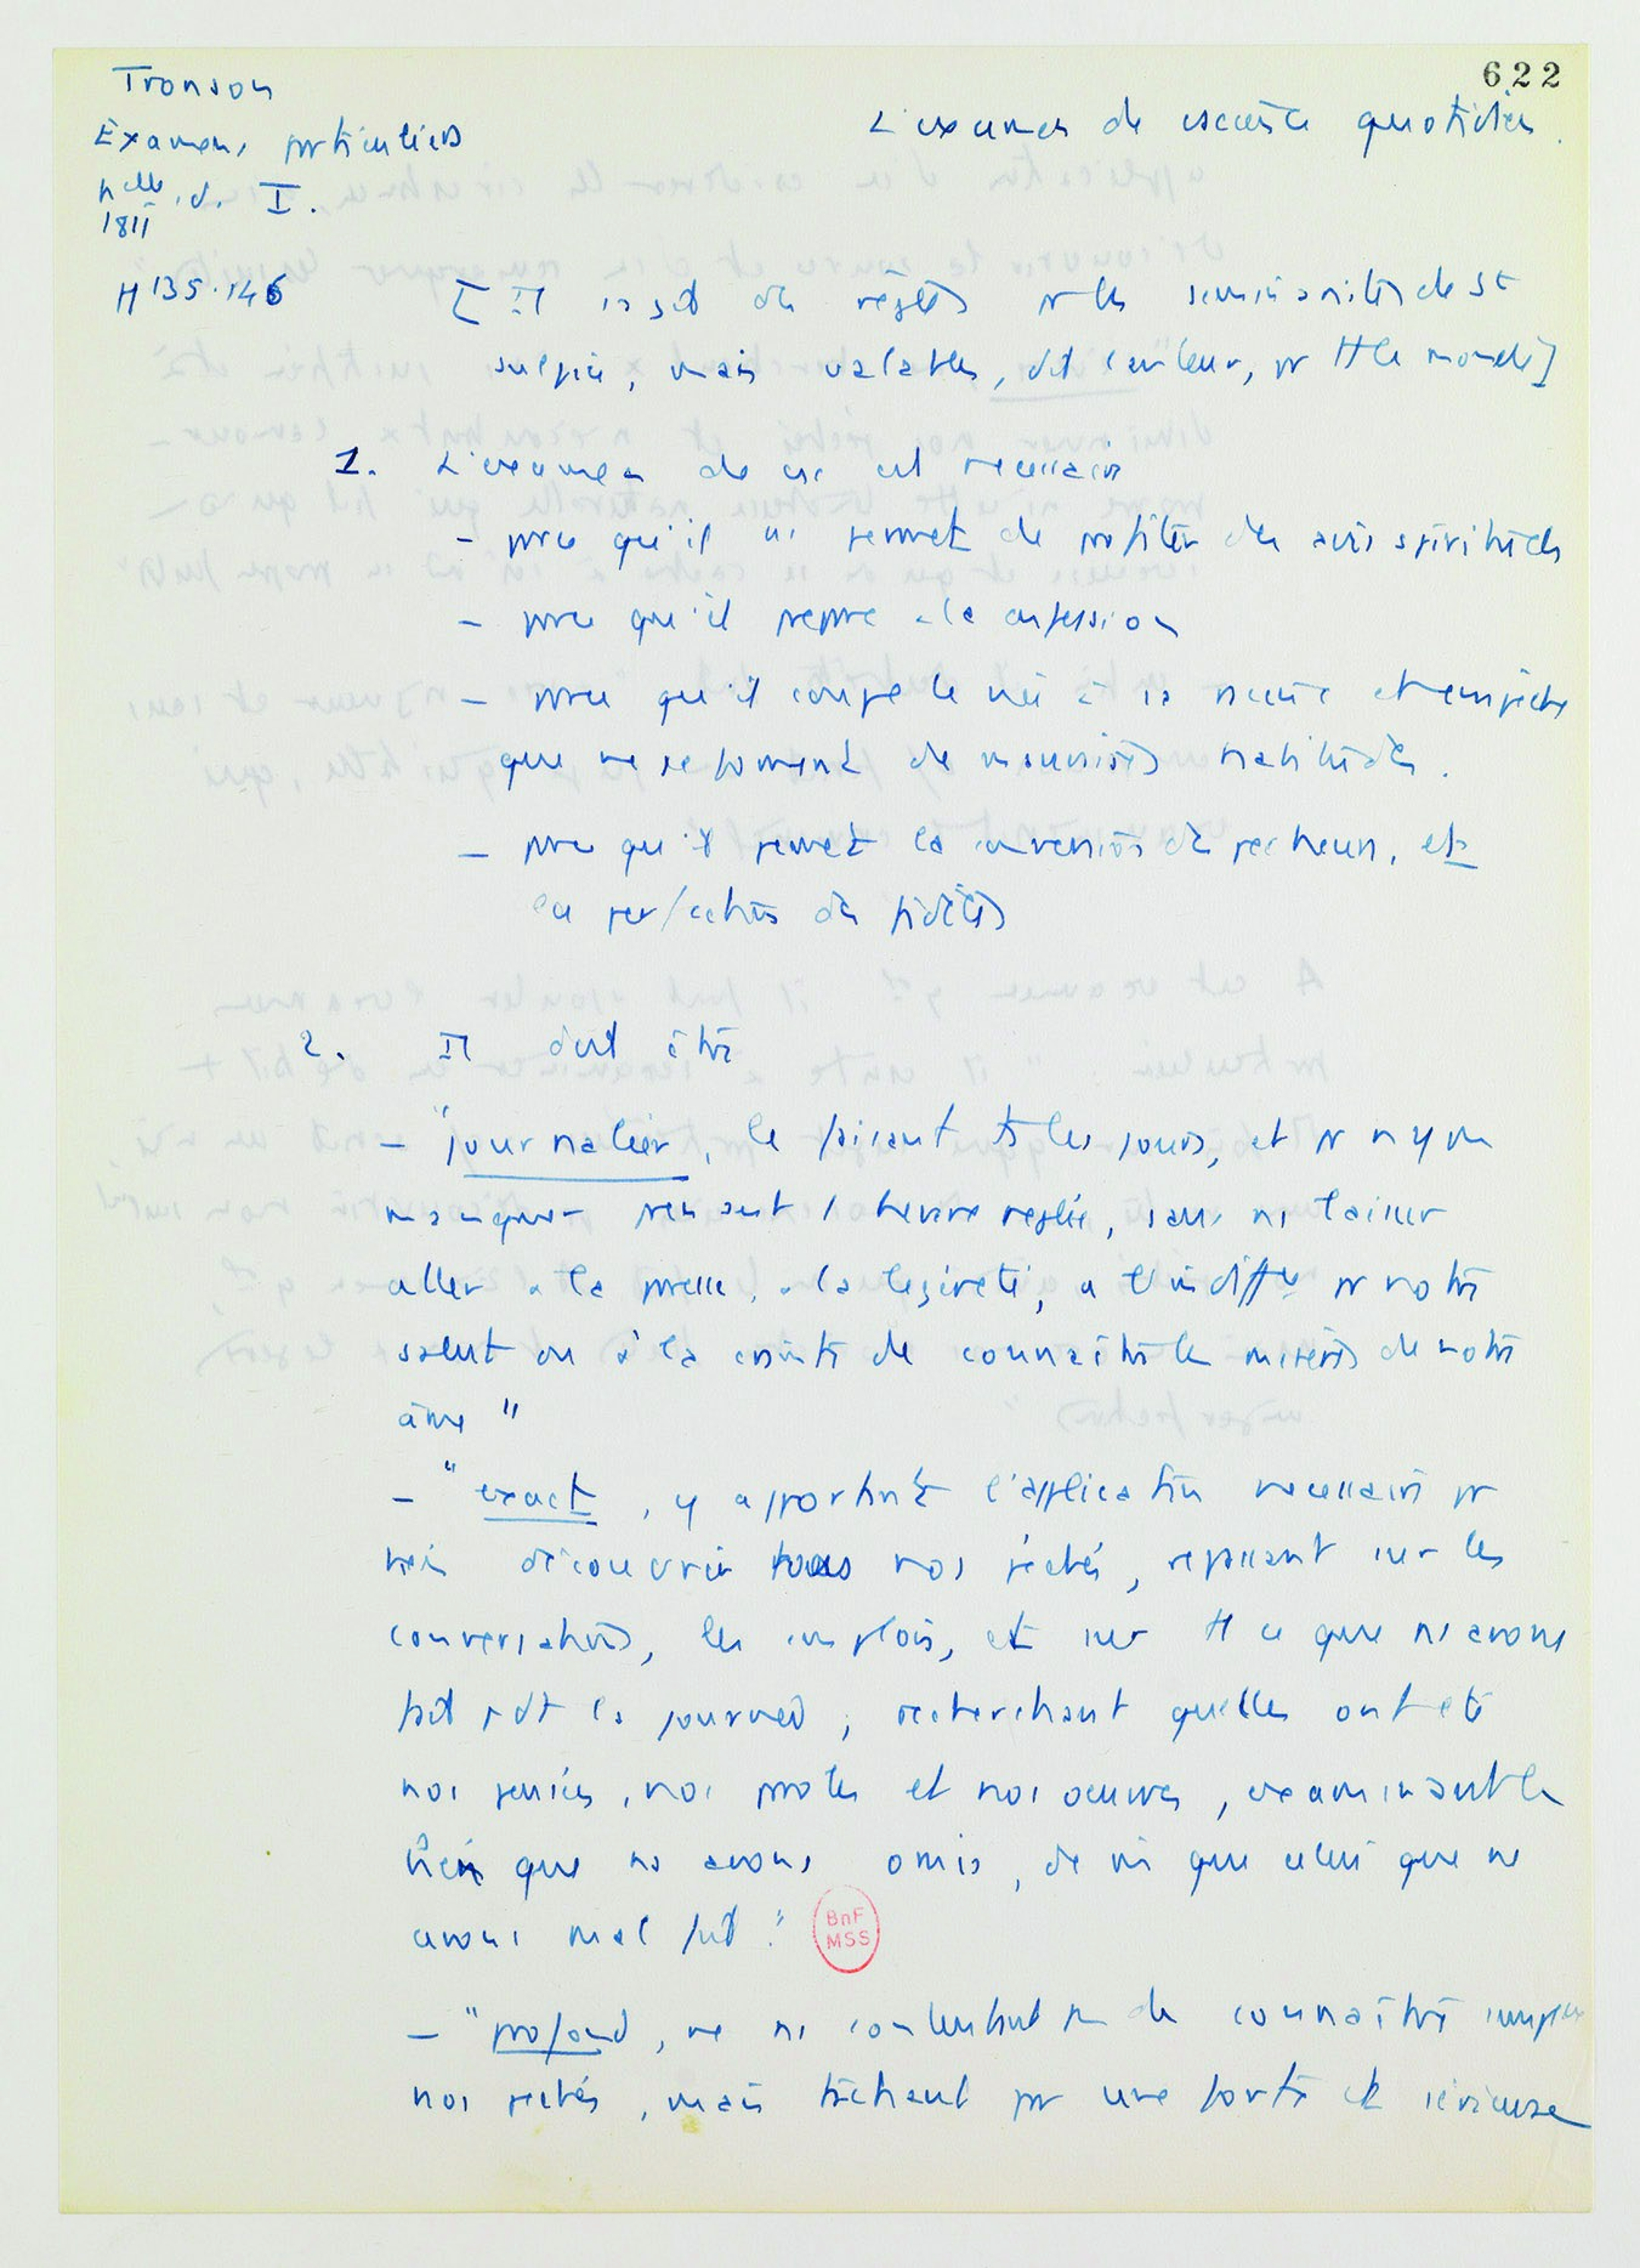 622
Tronson
Examens particuliers
nelle éd. I.
1811
L'examen de conscience quotidien.
H 135.146
[Il s'agit de règles pr les séminaristes de St
Sulpice, mais valables, dit l'auteur, pr tt le monde]
1. L'examen de csc est necessaire
- parce qu'il ns permet de profiter des avis spirituels
- parce qu'il prepare a la confession
- parce qu'il coupe le mal à sa racine et empeche
que ne se forment de mauvaises habitudes.
- parce qu'il permet la conversion des pecheurs, et
la perfection des fidèles
2. Il doit être
- "journalier, le faisant ts les jours, et pr n'y pas
manquer prenant 1 heure reglée, sans ns laisser
aller a la paresse, a la legereté, a l'indiffce pr notre
salut ou à la crainte de connaître les misères de notre
âme"
- "exact, y apportant l'application necessaire pr
bien découvrir tous nos péchés, repassant sur les
conversations, les emplois, et sur tt ce que ns avons
fait pdt la journée, recherchant quelles ont été
nos pensées, nos paroles et nos oeuvres, examinant le
bien que ns avons omis, de m que celui que ns
avons mal fait."
BnF
MSS
- "profond, ne ns contentant pas de connaître
nos péchés, mais tâchant par une forte et sérieuse